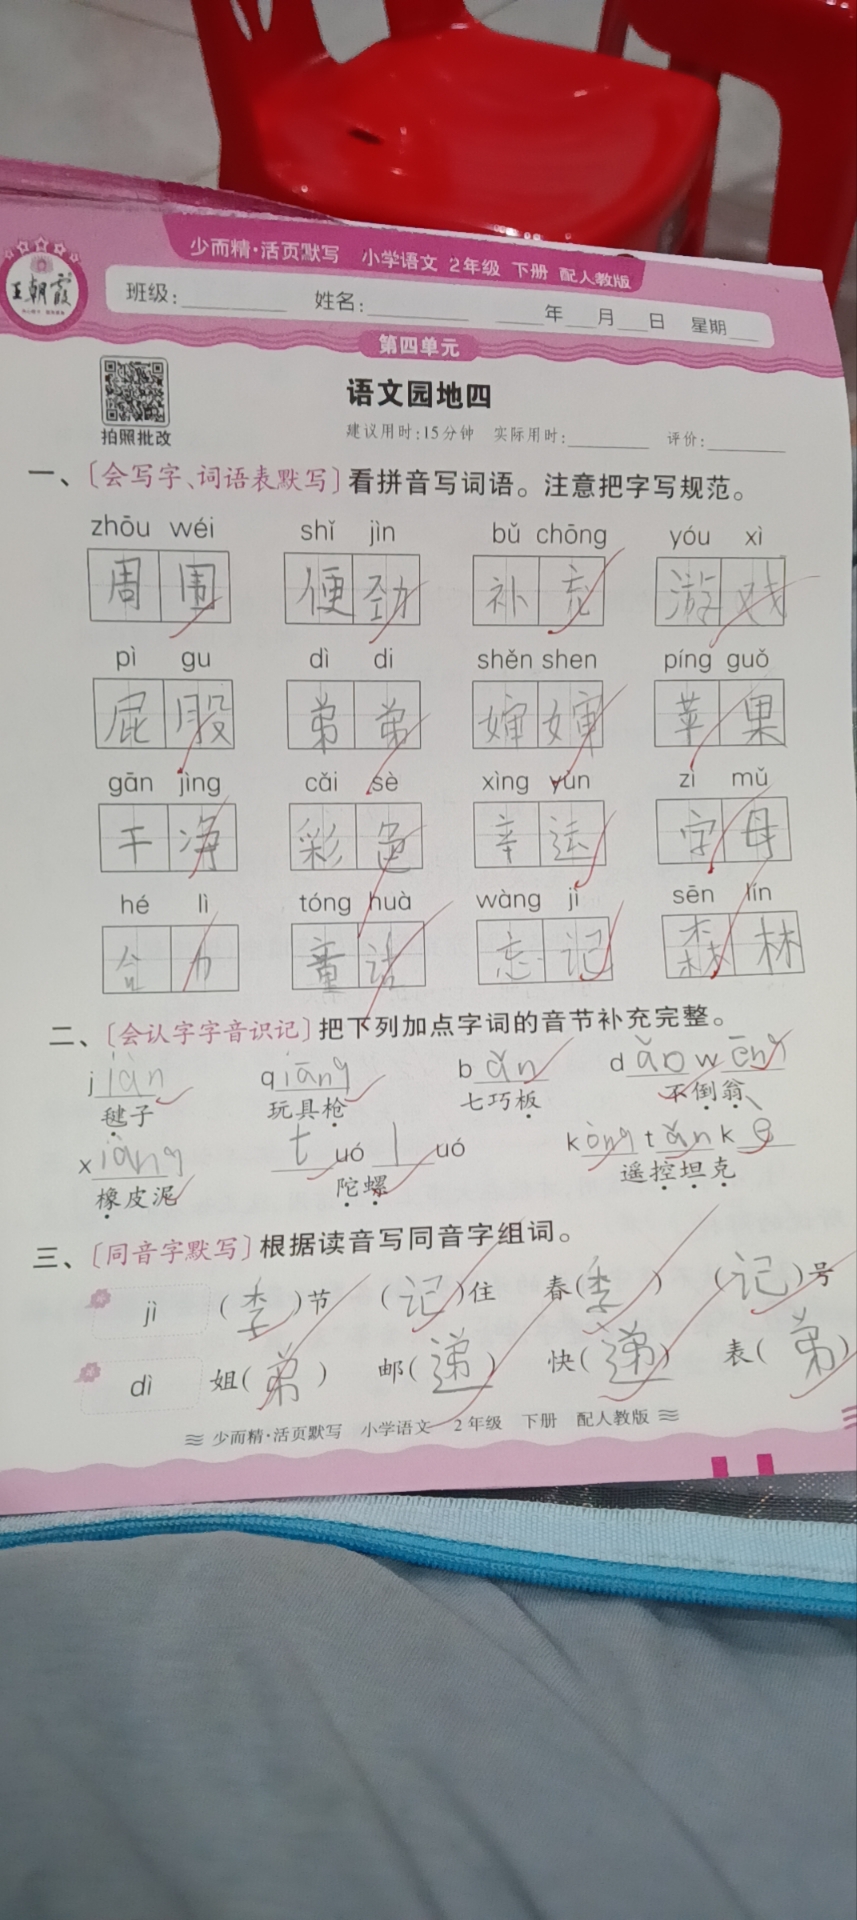 少而精·活页默写 小学语文 2年级 下册 配人教版
王朝霞
班级: 姓名: 年 月 日 星期
第四单元
语文园地四
拍照批改
建议用时:15分钟 实际用时: 评价:
一、〔会写字、词语表默写〕看拼音写词语。注意把字写规范。
zhōu wéi shǐ jìn bǔ chōng yóu xì
周围 便劲 补充 游戏
pì gu dì di shěn shen píng guǒ
屁股 弟弟 婶婶 苹果
gān jìng cǎi sè xìng yùn zì mǔ
干净 彩色 辛运 字母
hé lì tóng huà wàng jì sēn lín
合力 童话 忘记 森林
二、〔会认字字音识记〕把下列加点字词的音节补充完整。
jiàn qiāng bǎn dǎo wēng
毽子 玩具枪 七巧板 不倒翁、
xiàng tuó luó kòng tǎn kè
橡皮泥 陀螺 遥控坦克
三、〔同音字默写〕根据读音写同音字组词。
jì (季)节 (记)住 春(季) (记)号
dì 姐(弟) 邮(递) 快(递) 表(弟)
少而精·活页默写 小学语文 2年级 下册 配人教版